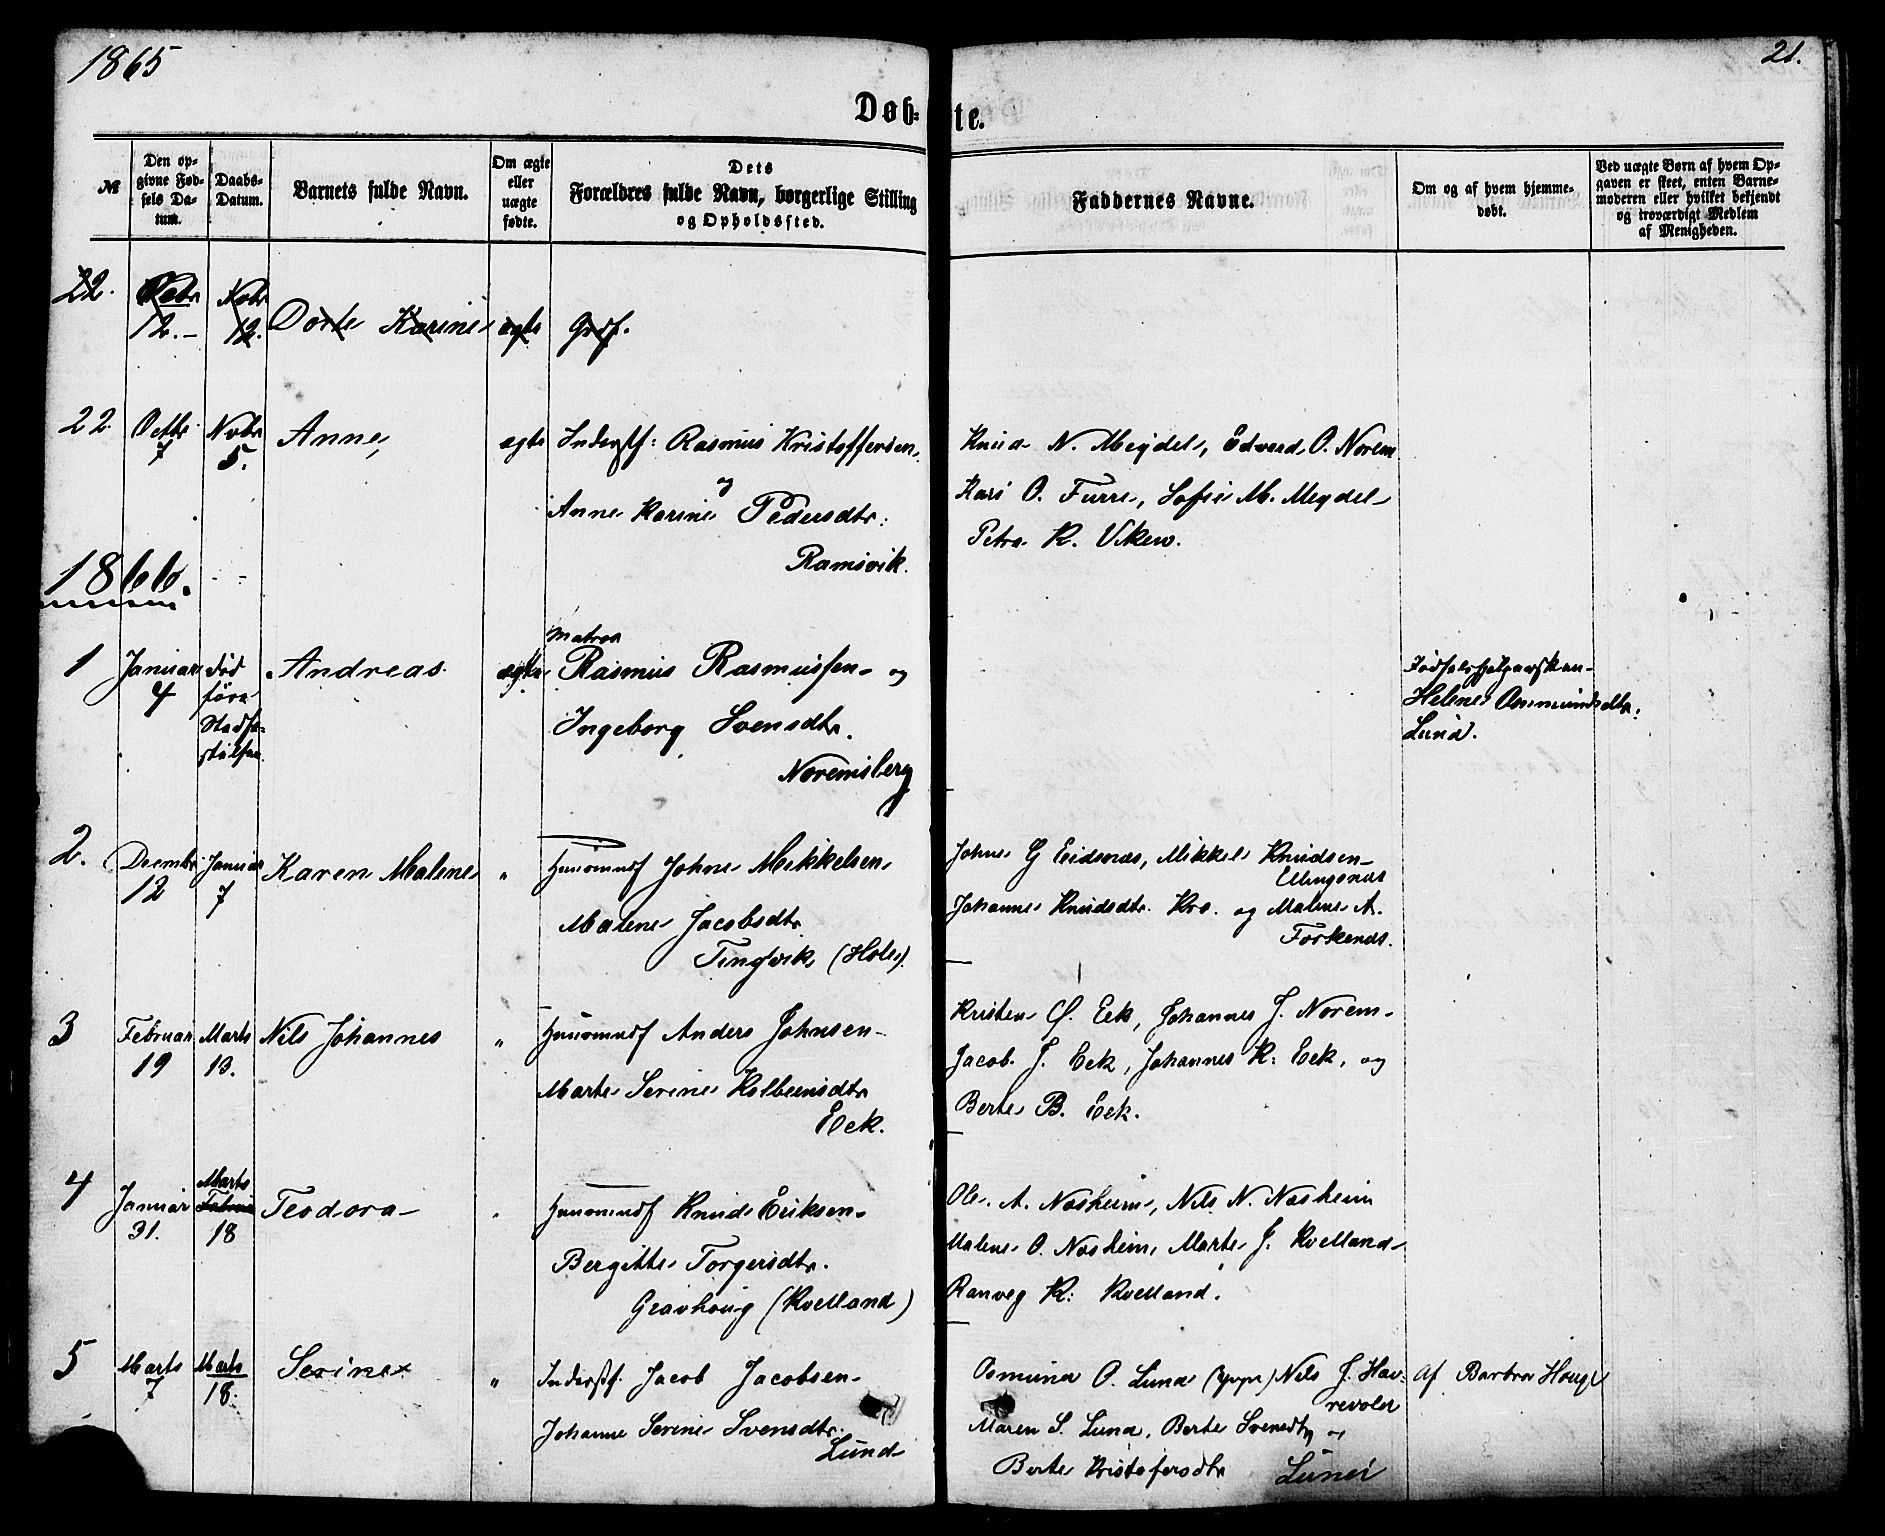 1865
21.
Døb-te.
№
Den op-
givne Fød-
sels Da-
tum.
Daabs-
Datum.
Barnets fulde Navn.
Om ægte
eller
uægte
fødte.
Dets
Forældres fulde Navn, borgerlige Stilling
og Opholdssted.
Faddernes Navne.
Om og af hvem hjemme-
døbt.
Ved uægte Børn af hvem Op-
gaven er skeet, enten Barne-
moderen eller hvilket bekjendt
og troværdigt Medlem
af Menigheden.
22. Octbr 12. Nobr 12. Dorte Karine ægte
22 Octbr 7 Nobr 5. Anne, ægte Inderstf: Rasmus Kristoffersen
og
Anne Karine Pedersdtr:
Ramsvik.
Knud N. Meydel, Edvard O. Norem
Kari O. Furre, Sofie M. Meydel
Petra K. Viken.
1866.
1 Januar 4 død före Stadfæstelsen Andreas. ægte Matros
Rasmus Rasmussen og
Ingeborg Svensdtr.
Noremsberg
Helene Osmundsdtr:
Lund.
2. Decembr 12 Januar 7 Karen Malene " Huusmndf Johne Mikkelsen
Malene Jacobsdtr
Tingvik (Hole).
Johne G Eidsnæs, Mikkel Knudsen
Ellingsnæs
Johanne Knudsdtr. Kro. og Malene A.
3 Februar 19 Marts 13. Nils Johannes " Huusmndf Anders Johnsen
Marte Serine Kolbeensdtr
Eek.
Kristen Eek, Johannes J. Norem
Jacob J. Eek, Johannes K: Eek, og
Berte B. Eek.
4 Januar 31. Marts Februar 18 Teodora " Huusmndf Knud Eriksen
Bergitte Torgersdtr.
Gravhoug (Kvelland)
Ole A. Nosheim, Nils N. Nosheim
Malene O. Nosheim, Marte J. Kvelland
Ranveg K: Kvelland.
5 Marts 7 Marts 18. Serine " Inderstf. Jacob Jacobsen
Johanne Serine Svensdtr.
Lund
Osmund O. Lund Nils J. Hav-
revold
Maren S. Lund, Berte Svensdtr og
Berte Kristofersdtr Lund
Af Barbra Houge